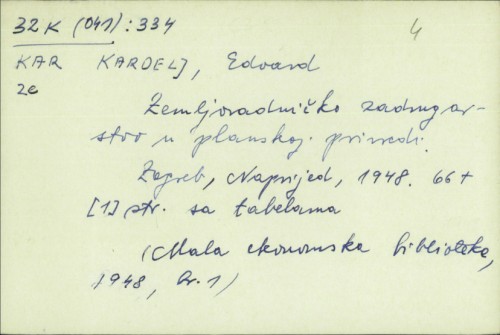 32 K (041) : 334
4
KAR KARDELJ, Edvard
ze
Zemljoradničko zadrugar-
stvo u planskoj privredi.
Zagreb, Naprijed, 1948. 66+
[1] str. sa tabelama
(Mala ekonomska biblioteka,
1948, br. 1)